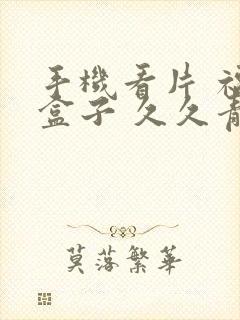 手機看片
盒子 久久
莫落繁華